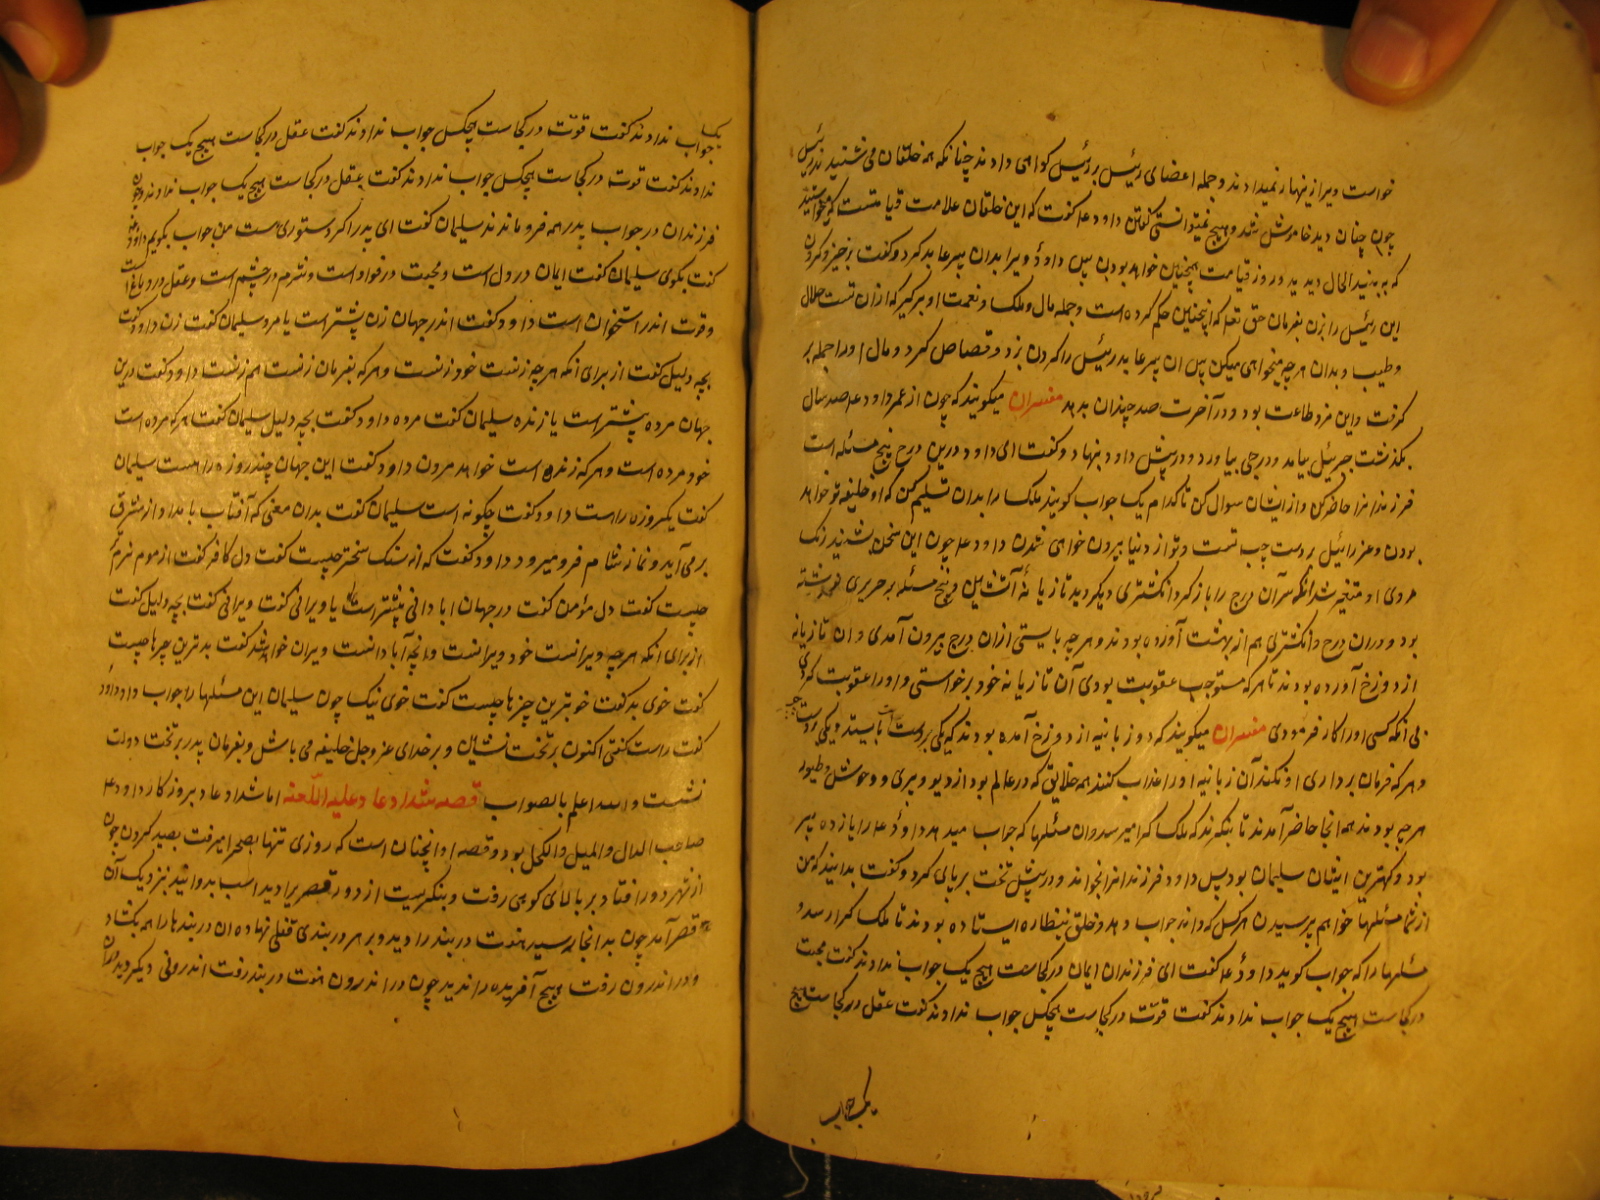 خواست ویرا زینهار نمیدادند و جمله اعضای رئیس بر رئیس گواهی دادند چنانکه همه خلقان می شنیدند رئیس
چون چنان دید خاموش شد و هیچ نمیتوانستی گفتن داود ع گفت که این خلقان علامت قیامتست که میخواستید
که ببینید الحال دیدید در روز قیامت همچنین خواهد بودن پس داود ویرا بدان پسر عابد کرد و گفت برخیز و گردن
این رئیس را بزن بفرمان حق تعالی که اینچنین حکم کرده است و جمله مال و ملک و نعمت او برگیر که از ان تست حلال
و طیب و بدان هر چه میخواهی میکن پس ان پسر عابد رئیس را گردن بزد و قصاص کرد و مال او را جمله بر
گرفت و این مزد طاعت بود و در آخرت صد چندان بدهد مفسران میگویند که چون از عمر داود ع صد سال
بگذشت جبرئیل بیامد و درجی بیاورد و در پیش داود بنهاد و گفت ای داود درین درج پنج مسئله است
فرزندانرا حاضر کن و از ایشان سوال کن تا کدام یک جواب گویند ملک را بدان تسلیم کن که او خلیفه تو خواهد
بودن و عزرائیل بر دست چپ تست و تو از دنیا بیرون خواهی شدن داود ع چون این سخن بشنید رنک
روی او متغیر شد انکه سر آن درج را باز کرد انکشتری دیکر دید تازیانهٔ آتشین و پنج مسئله بر حریری نوشته
بود و در ان درج و انکشتری هم از بهشت آورده بودند و هر چه بایستی ازان درج بیرون آمدی و ان تازیانه
از دوزخ آورده بودند تا هر که مستوجب عقوبت بودی آن تازیانه خود برخاستی و او را عقوبت کردی
بی آنکه کسی او را کار فرمودی مفسران میگویند که دو زبانیه از دوزخ آمده بودند که یکی بر دست راست بایستد و یکی بر دست چپ
و هر که فرمان برداری او نکند آن زبانیه او را عذاب کنند همه خلایق که در عالم بود از دیو و پری و وحوش و طیور
هر چه بودند همه انجا حاضر آمدند تا بنکرند که ملک که امیر سد وان مسئلها که جواب میدهد داود ع را یازده پسر
بود و کهترین ایشان سلیمان بود پس داود فرزندانرا بخواند و در پیش تخت بر پای کرد و گفت بدانید که من
از شما مسئلها خواهم پرسیدن هر کس که داند جواب دهد و خلق بنظاره ایستاده بودند تا ملک کرا رسد و
مسئلها را که جواب گوید داود ع گفت ای فرزندان ایمان در کجاست هیچ یک جواب ندادند گفت محبت
در کجاست هیچ یک جواب ندادند گفت قوّت در کجاست هیچکس جواب ندادند گفت عقل در کجاست هیچ
یک جواب
یک جواب ندادند گفت قوّت در کجاست هیچکس جواب ندادند گفت عقل در کجاست هیچ یک جواب
ندادند گفت قوت در کجاست هیچکس جواب ندادند گفت عقل در کجاست هیچ یک جواب ندادند چون
فرزندان در جواب پدر همه فرو ماندند سلیمان گفت ای پدر اکر دستوری هست من جواب بکویم داود
گفت بگوی سلیمان گفت ایمان در دل است و محبت در فواد است و شرم در چشم است و عقل در دماغ است
و قوت اندر استخوان است داود گفت اندر جهان زن پیشتر است یا مرد سلیمان گفت زن داود گفت
بچه دلیل گفت از برای آنکه هر چه زنست خود زنست و هر که بفرمان زنست هم زنست داود گفت درین
جهان مرده پیشتر است یا زنده سلیمان گفت مرده داود گفت بچه دلیل سلیمان گفت هر که مرده است
خود مرده است و هر که زنده است خواهد مردن داود گفت این جهان چند روزه راهست سلیمان
گفت یکروزه راست داود گفت چگونه است سلیمان گفت بدان معنی که آفتاب بامداد از مشرق
بر می آید و نماز شام فرو میرود داود گفت که از سنک سختر چیست گفت دل کافر گفت از موم نرم
چیست گفت دل مؤمن گفت در جهان ابادانی پیشتر است یا ویرانی گفت ویرانی گفت بچه دلیل گفت
از برای انکه هر چه ویرانست خود ویرانست و آنچه آبادانست ویران خواهد شد گفت بدترین چیزها چیست
گفت خوی بد گفت خوبترین چیزها چیست گفت خوی نیک چون سلیمان این مسئلها را جواب داد داود
گفت راست گفتی اکنون بر تخت نشین و بر خدای عز و جل خلیفه می باش و بفرمان پدر بر تخت دولت
نشست والله اعلم بالصواب قصه شداد عاد علیه اللعنه اما شداد عاد بروزکار داود ع
صاحب المال والمیل والکحل بود و قصه او انچنان است که روزی تنها بصحرا میرفت بصید کردن چون
از شهر دور افتاد بر بالای کوهی رفت و بنکریست از دور قصری را دید اسب بدوانید نزدیک آن
قصر آمد چون بدانجا رسید هفت دربند را دید و بر هر دربندی قفلی نهاده ان دربندها را همه بکشاد
و در اندرون رفت هیچ آفریده را ندید چون در اندرون هفت دربند رفت اندرونی دیگر دید